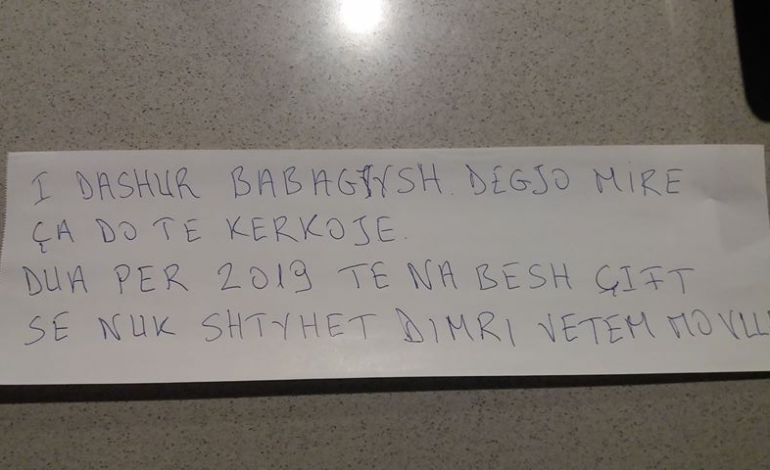 I DASHUR BABAGJYSH. DEGJO MIRE
ÇA DO TE KERKOJE.
DUA PER 2019 TE NA BESH ÇIFT
SE NUK SHTYHET DIMRI VETEM MO VLL